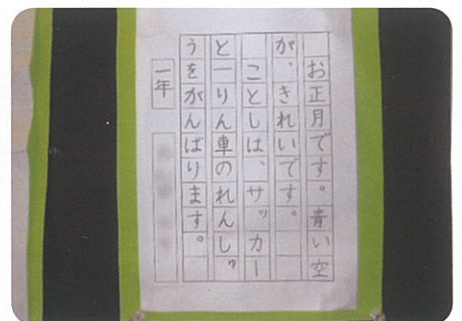 お正月です。青い空
が、きれいです。
ことしは、サッカー
と一りん車のれんしゅ
うをがんばります。
一年